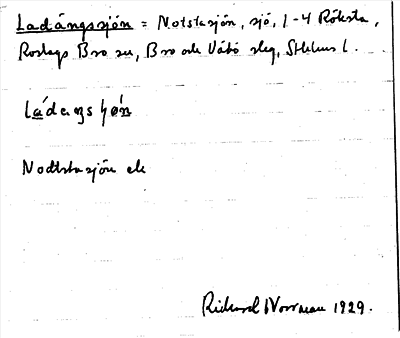 Ladängssjön = Notstasjön, sjö, 1-4 Röksta,
Roslags Bro sn, Bro och Vätö slg, Sthlms l.
Nodtstasjön
Richard Norrman 1929.